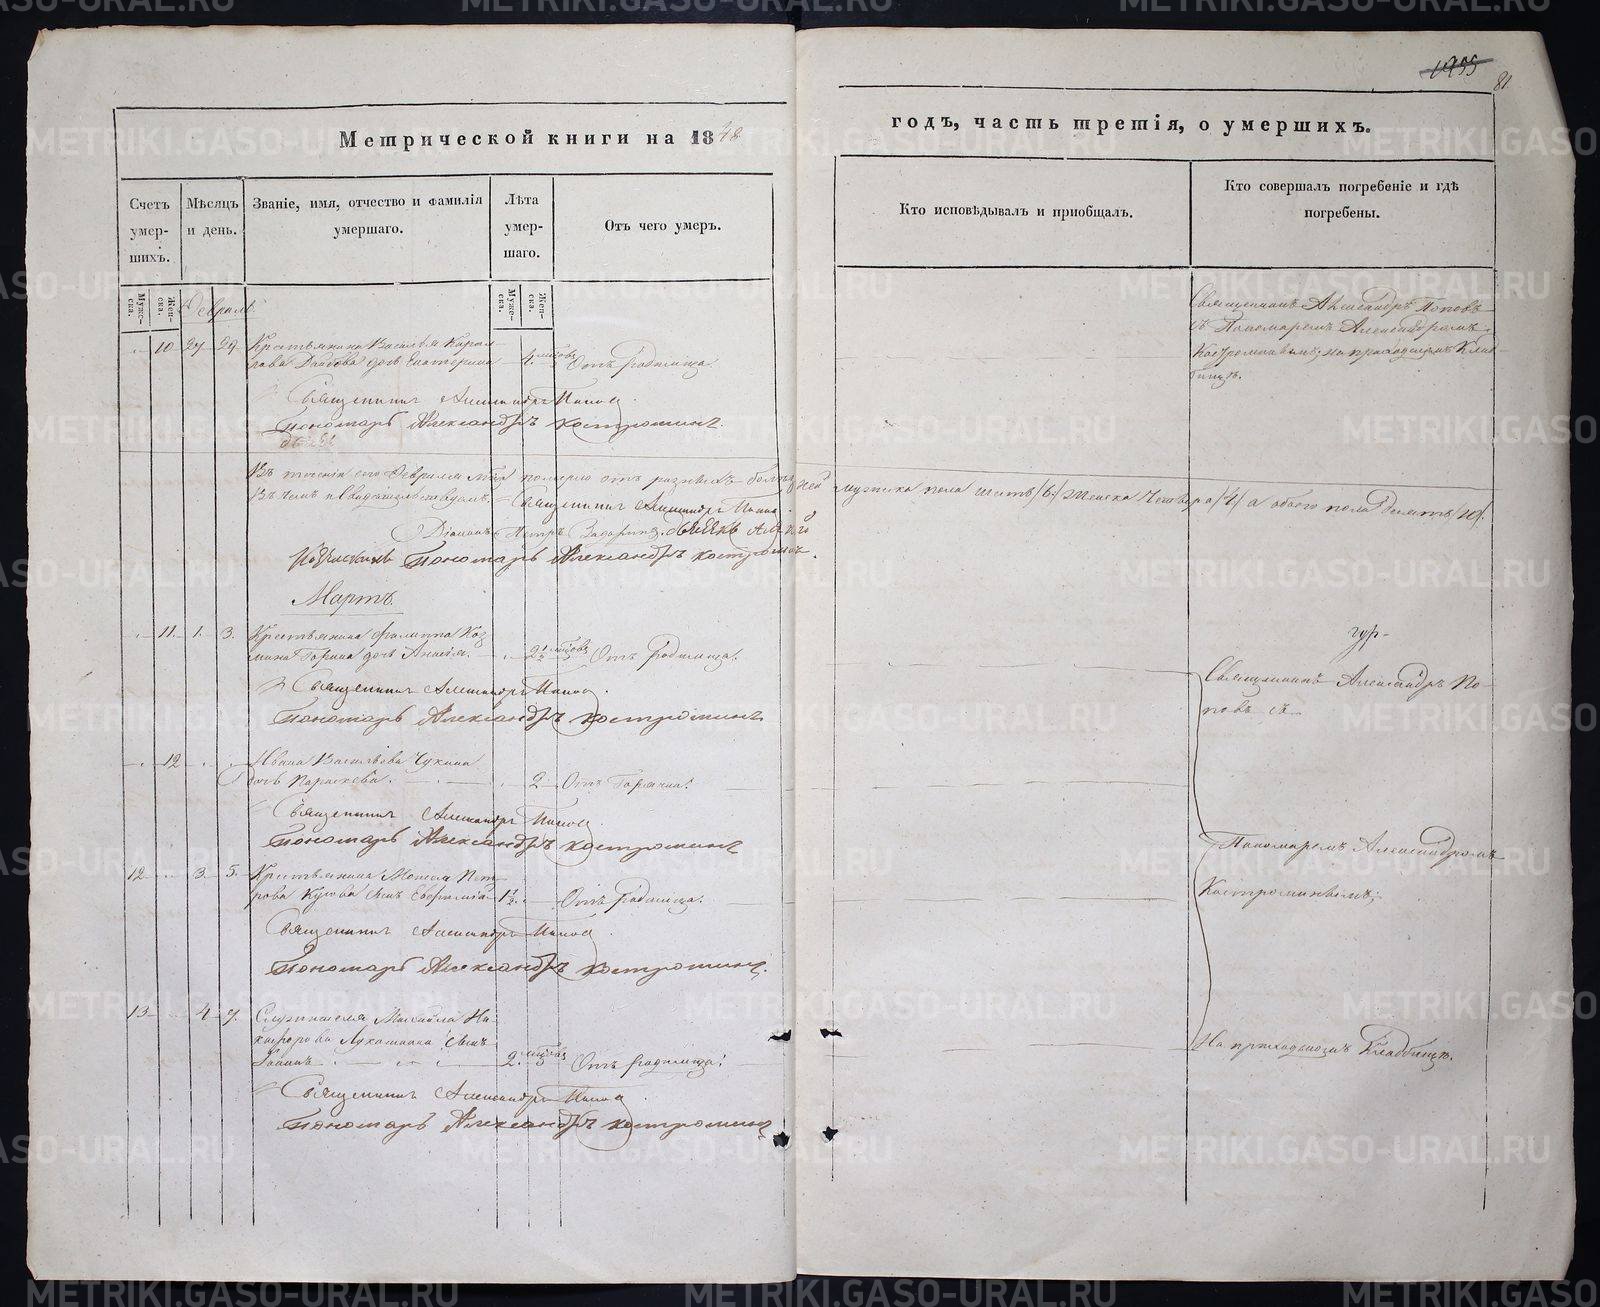 1855
81
Метрической книги на 1848
годъ, часть третія, о умершихъ.
Счетъ умер-шихъ.
Мѣсяцъ и день.
Званіе, имя, отчество и фамилія умершаго.
Лѣта умер-шаго.
Отъ чего умеръ.
Кто исповѣдывалъ и пріобщалъ.
Кто совершалъ погребеніе и гдѣ погребены.
Муже-ска.
Жен-ска.
Муже-ска.
Жен-ска.
Февраль
10 27 29 Крестьянина Василья
дочь Екатерина 4 мѣсяцовъ Отъ родимца.
Священникъ Александръ Поповъ
съ Пономаремъ Александромъ
Костроминымъ, на приходскомъ Клад-
бищѣ.
Священникъ Александръ Поповъ.
Пономарь Александръ Костроминъ.
Въ теченіи сего Февраля мѣсяца померло отъ разныхъ болѣзней мужеска пола шесть /6./ женска четыре /4/ а обоего пола десять /10/.
Въ чемъ и свидѣтельствуемъ. Священникъ Александръ Поповъ.
Діаконъ Петръ
Пономарь Александръ Костроминъ.
Мартъ.
11. 1. 3. Крестьянина Филиппа Коз-
мина дочь 2½ мѣсяцовъ Отъ родимца.
Священникъ Александръ По-
повъ съ
Священникъ Александръ Поповъ.
Пономарь Александръ Костроминъ
12 Ивана Васильева Чукина
дочь Параскева. 2 Отъ горячки.
Священникъ Александръ Поповъ.
Пономарь Александръ Костроминъ
Пономаремъ Александромъ
12 3. 5. Крестьянина Моисея Пет-
рова сынъ 1½ Отъ родимца.
Костроминымъ,
Священникъ Александръ Поповъ.
Пономарь Александръ Костроминъ.
13 4 7. Служителя Михайла Ни-
кифорова сынъ
Іоаннъ 2 мѣсяцовъ Отъ родимца.
На приходскомъ Кладбищѣ.
Священникъ Александръ Поповъ.
Пономарь Александръ Костроминъ
METRIKI.GASO-URAL.RU